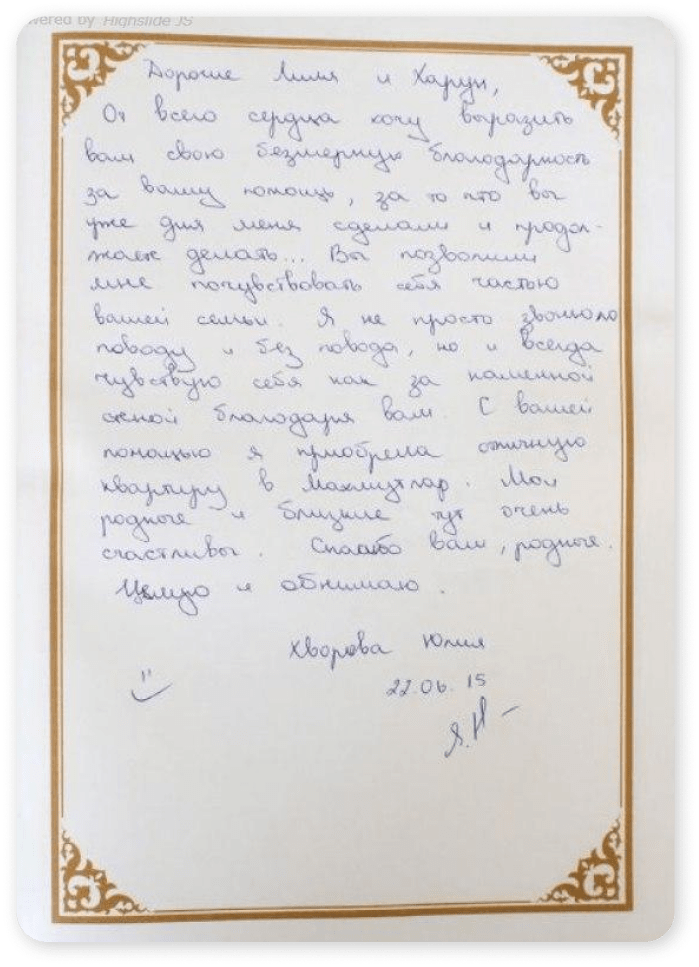 owered by Highslide JS
Дорогие Лилия и Харун,
От всего сердца хочу выразить
вам свою безмерную благодарность
за вашу помощь, за то что вы
уже для меня сделали и продол-
жаете делать... Вы позволили
мне почувствовать себя частью
вашей семьи. Я не просто звоню по
поводу и без повода, но и всегда
чувствую себя как за каменной
стеной благодаря вам. С вашей
помощью я приобрела отличную
квартиру в Махмутлар. Мои
родные и близкие тут очень
счастливы. Спасибо вам, родные.
Целую и обнимаю.
Хворова Юлия
22.06.15